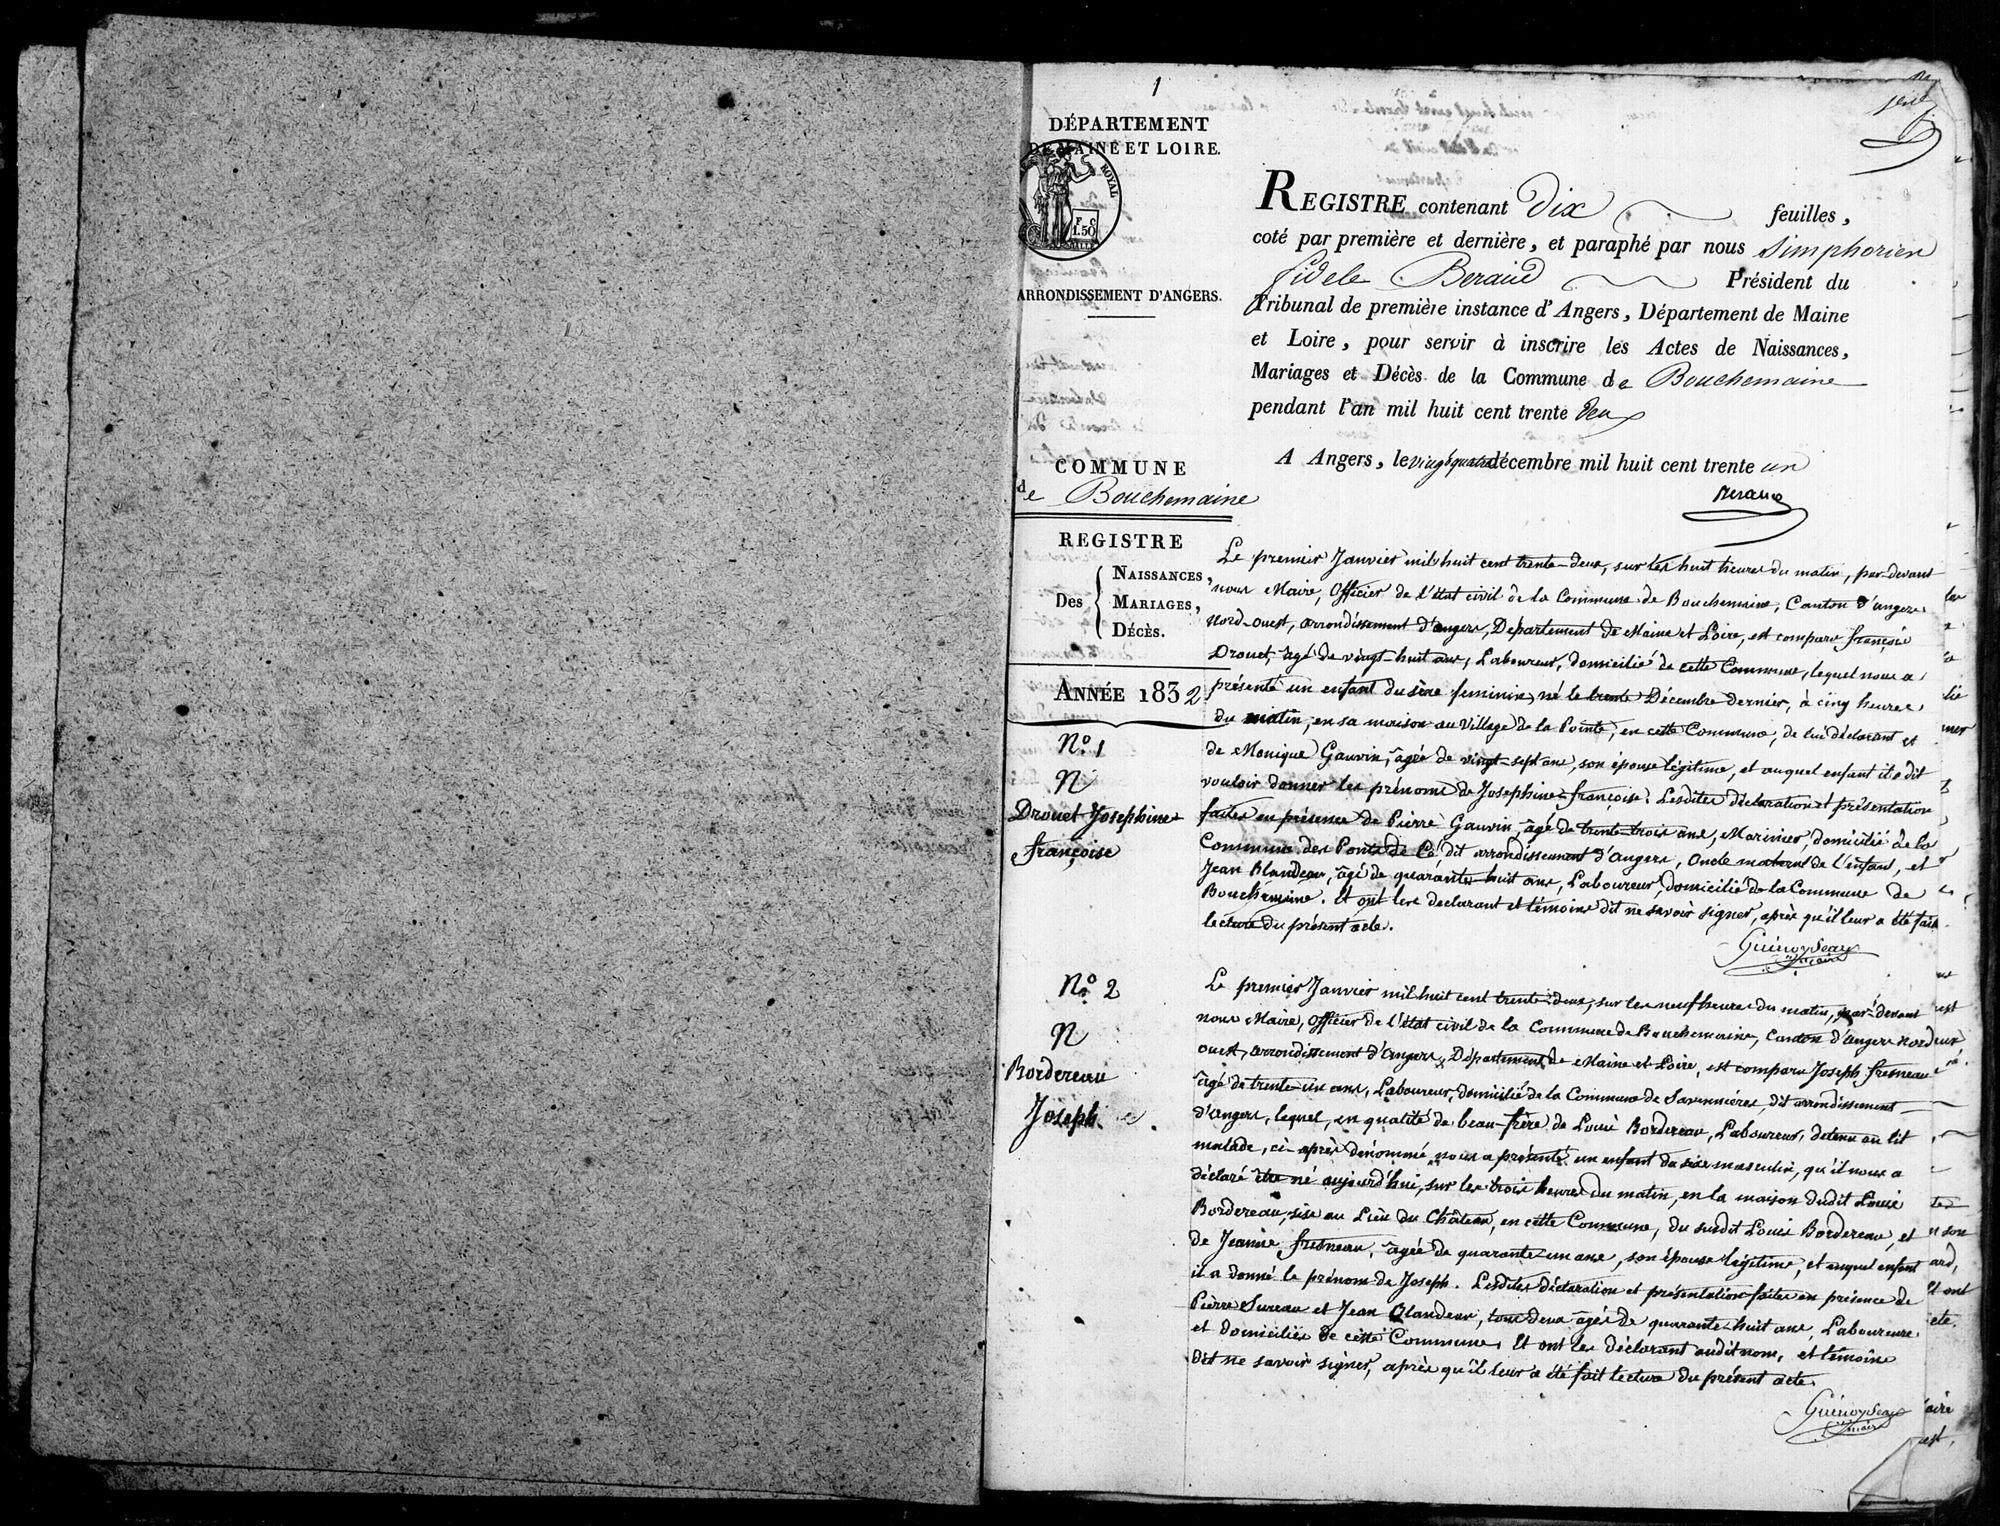 1
DÉPARTEMENT
DE MAINE ET LOIRE.
ROYAL
F. C
1.50
ARRONDISSEMENT D'ANGERS.
COMMUNE
de Bouchemaine
REGISTRE
Des
NAISSANCES,
MARIAGES,
DÉCÈS.
ANNÉE 1832
REGISTRE contenant dix feuilles,
coté par première et dernière, et paraphé par nous Simphorien
fidele Beraud Président du
Tribunal de première instance d'Angers, Département de Maine
et Loire, pour servir à inscrire les Actes de Naissances,
Mariages et Décès de la Commune de Bouchemaine
pendant l'an mil huit cent trente deux
A Angers, le vingt quatre décembre mil huit cent trente un
Beraud
N.º 1
N
Drouet Josephine
françoise
Le premier Janvier mil huit cent trente-deux, sur les huit heures du matin, par-devant
nous Maire, Officier de l'état civil de la Commune de Bouchemaine, Canton d'angers
Nord-ouest, arrondissement d'angers, Département de Maine et Loire, est comparu françois
Drouet, âgé de vingt-huit ans, Laboureur, domicilié de cette Commune, lequel nous a
présenté un enfant du sèxe feminin, né le trente Décembre dernier, à cinq heures
du matin, en sa maison au village de la Pointe, en cette Commune, de lui déclarant et
de Monique Gauvin, âgée de vingt-sept ans, son épouse légitime, et auquel enfant il a dit
vouloir donner les prénoms de Josephine-françoise. Lesdites déclaration et présentation
faites en présence de Pierre Gauvin, âgé de trente-trois ans, Marinier, domicilié de la
Commune des Ponts de Cé, dit arrondissement d'Angers, Oncle maternel de l'enfant, et
Jean Blandeau, âgé de quarante-huit ans, Laboureur, domicilié de la Commune de
Bouchemaine. Et ont les déclarant et témoins dit ne savoir signer, après qu'il leur a été fait
lecture du présent acte.
Guénoyseau
maire
N.º 2
N
Bordereau
Joseph
Le premier Janvier mil huit cent trente-deux, sur les neuf heures du matin, par-devant
nous Maire, Officier de l'état civil de la Commune de Bouchemaine, Canton d'angers Nord
ouest, arrondissement d'angers, Département de Maine et Loire, est comparu Joseph fresneau
âgé de trente-un ans, Laboureur, domicilié de la Commune de Savennières, dit arrondissement
d'Angers, lequel, en qualité de beau-frère de Louis Bordereau, Laboureur, detenu au lit
malade, ci-après dénommé, nous a présenté un enfant du sèxe masculin, qu'il nous a
déclaré être né aujourd'hui, sur les trois heures du matin, en la maison dudit Louis
Bordereau, sise au Lieu du Château, en cette Commune, du susdit Louis Bordereau, et
de Jeanne fresneau, âgée de quarante-un ans, son épouse légitime, et auquel enfant
il a donné le prénom de Joseph. Lesdites déclaration et présentation faites en présence de
Pierre Sureau et Jean Blandeau, tous deux âgés de quarante-huit ans, Laboureurs
et domiciliés de cette Commune. Et ont les déclarant audit nom, et témoins
dit ne savoir signer, après qu'il leur a été fait lecture du présent acte.
Guénoyseau
maire